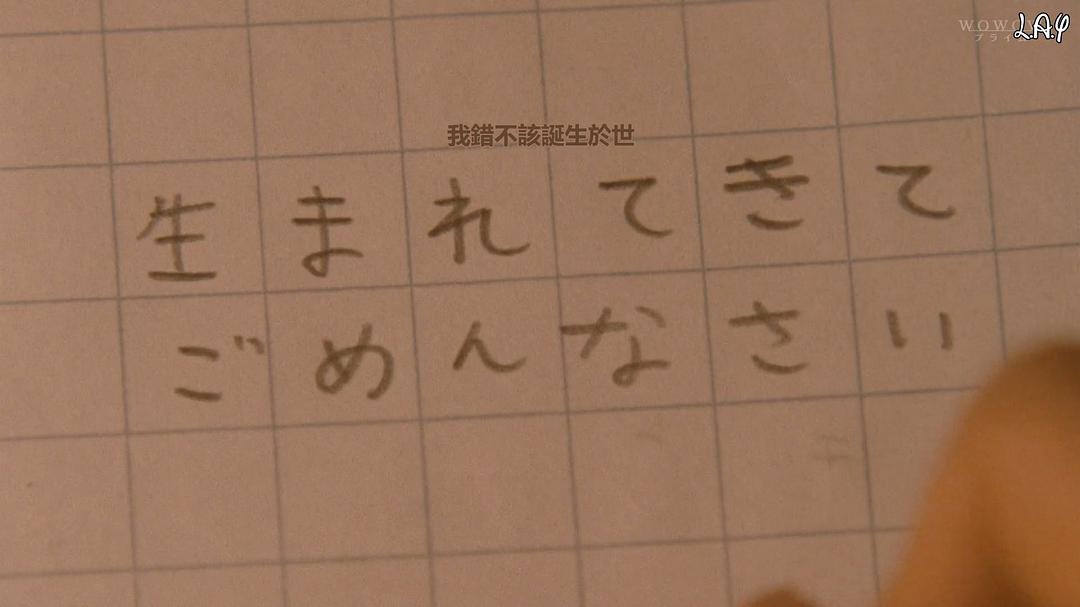 WOWO
プライム
L.A.φ
我錯不該誕生於世
生まれてきて
ごめんなさい